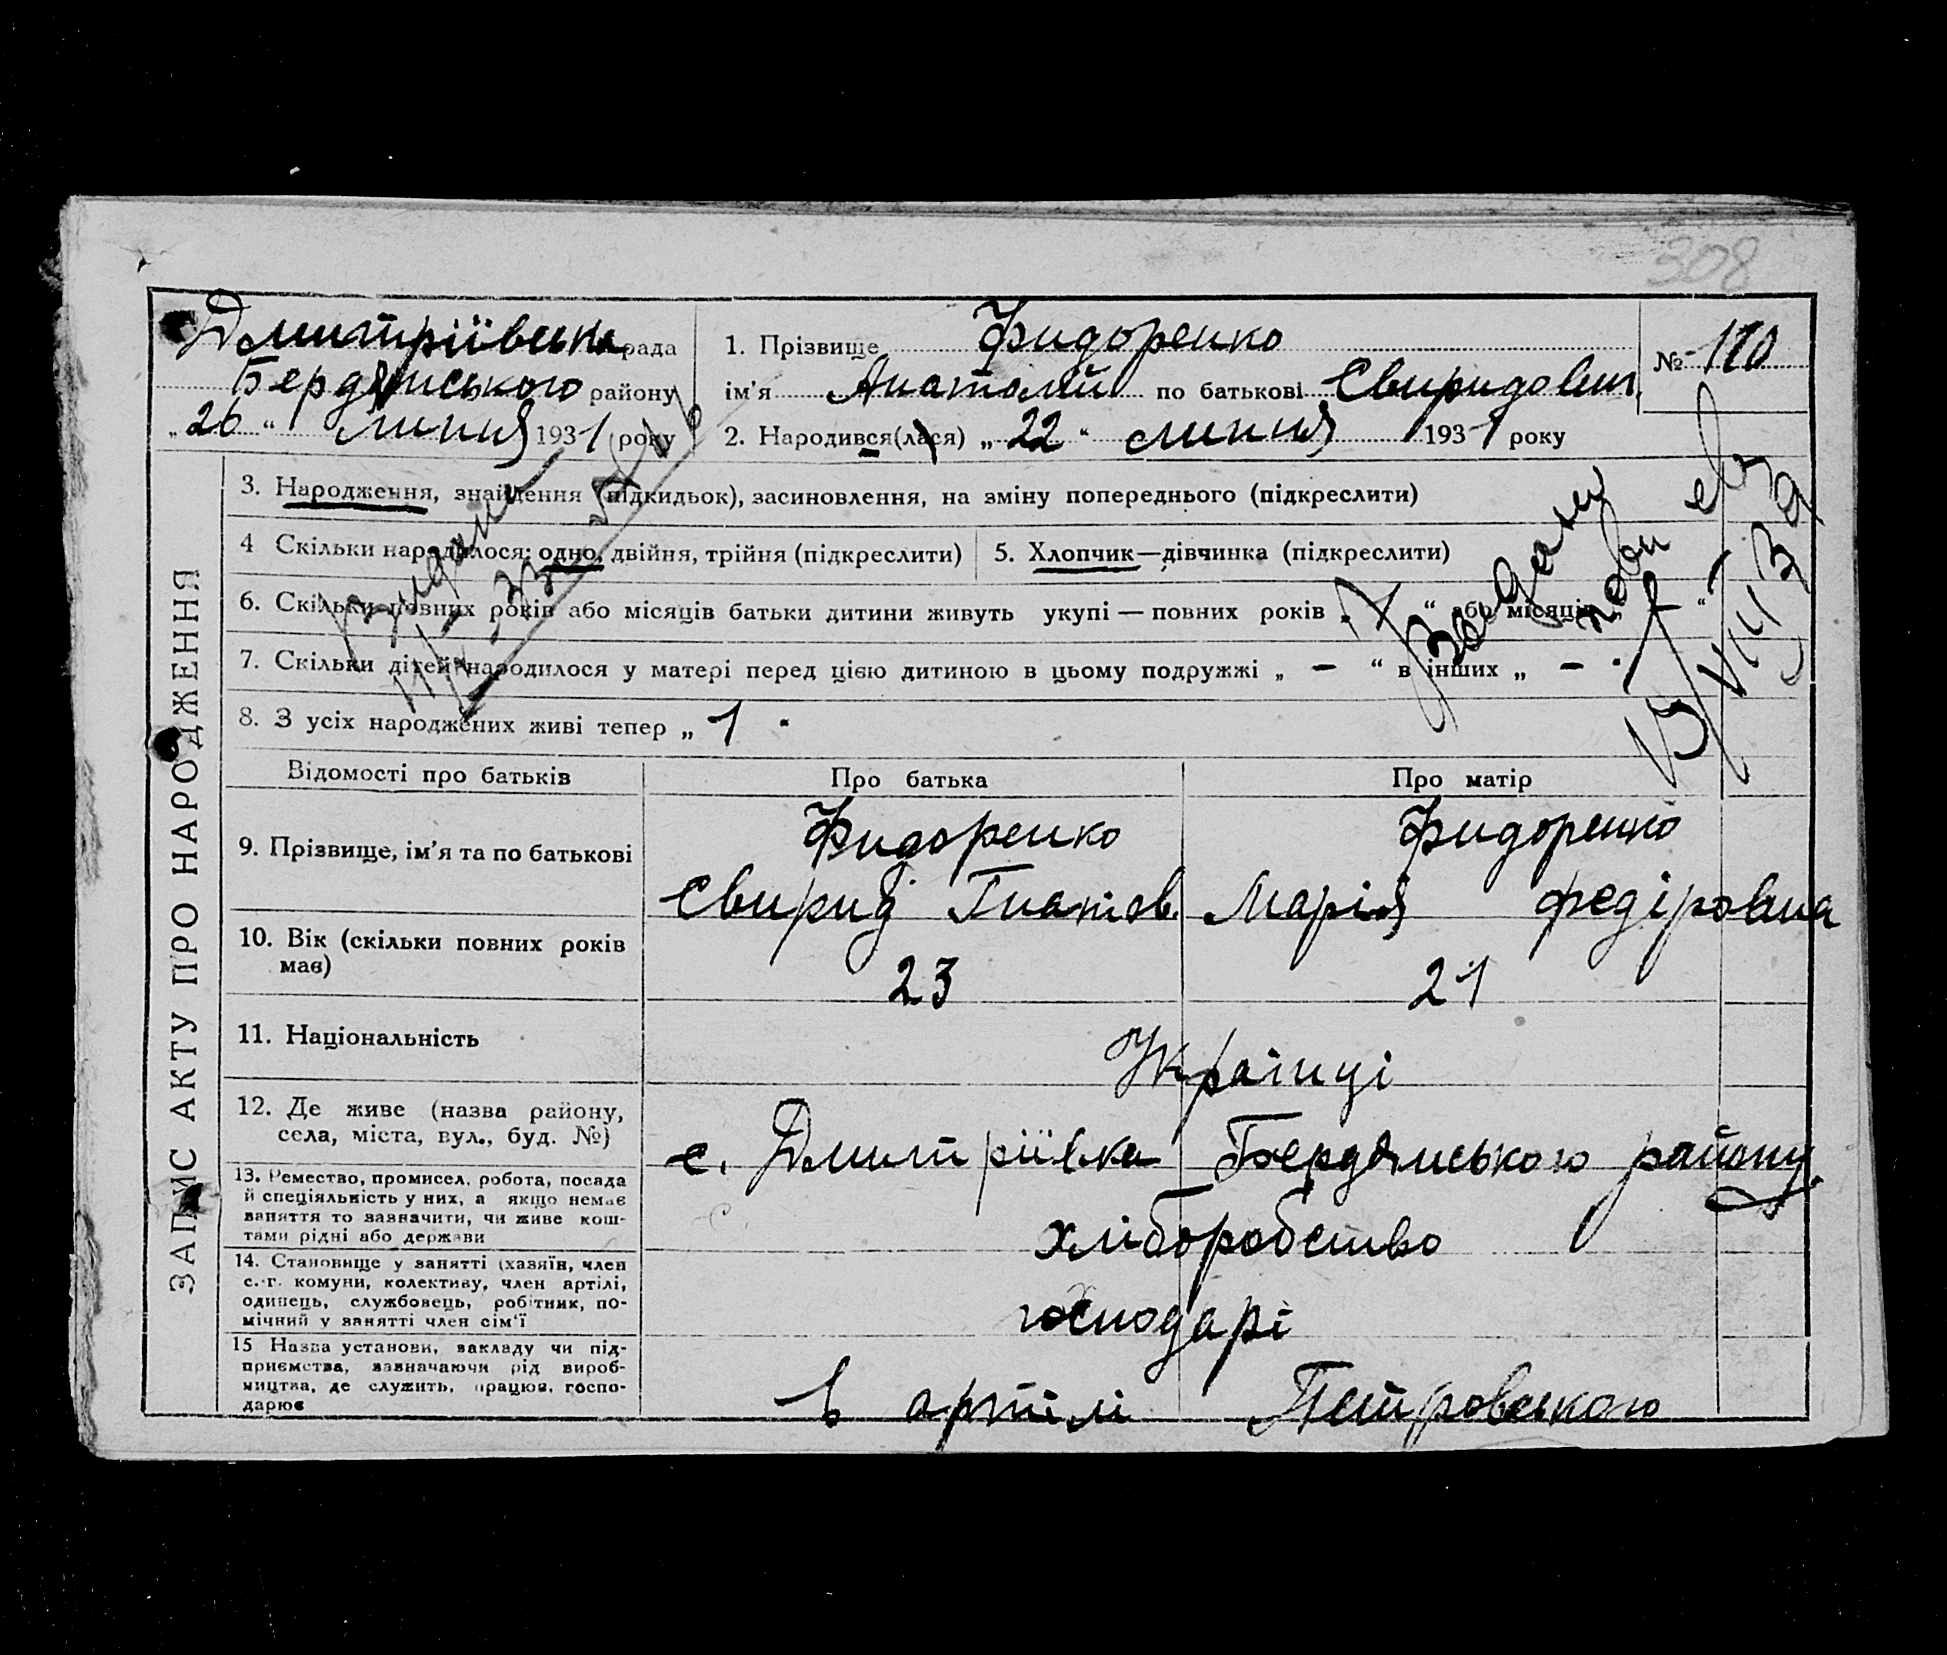 308
Дмитріївська рада
Бердянського району
„26“ липня 1931 року
1. Прізвище Фидоренко
ім'я Анатолій по батькові Свиридович
2. Народився(лася) „22“ липня 1931 року
№ 110
ЗАПИС АКТУ ПРО НАРОДЖЕННЯ
3. Народження, знайдення (підкидьок), засиновлення, на зміну попереднього (підкреслити)
4 Скільки народилося: одно, двійня, трійня (підкреслити)
5. Хлопчик—дівчинка (підкреслити)
6. Скільки повних років або місяців батьки дитини живуть укупі — повних років „1“ або місяців „ “
7. Скільки дітей народилося у матері перед цією дитиною в цьому подружжі „ — “ в інших „ — “
8. З усіх народжених живі тепер „ 1 "
Відомості про батьків Про батька Про матір
9. Прізвище, ім'я та по батькові
Фидоренко Фидоренко
Свирид Гнатов. Марія Федіровна
10. Вік (скільки повних років
має)
23 21
11. Національність
Українці
12. Де живе (назва району,
села, міста, вул., буд. №)
с. Дмитріївка Бердянського району
13. Ремество, промисел, робота, посада
й спеціяльність у них, а якщо немає
заняття то зазначити, чи живе кош-
тами рідні або держави
хліборобство
14. Становище у занятті (хазяїн, член
с.-г. комуни, колективу, член артілі,
одинець, службовець, робітник, по-
мічний у занятті член сім'ї
господарі
15 Назва установи, закладу чи під-
приємства, зазначаючи рід вироб-
ництва, де служить, працює, госпо-
дарює
в артілі Петровського